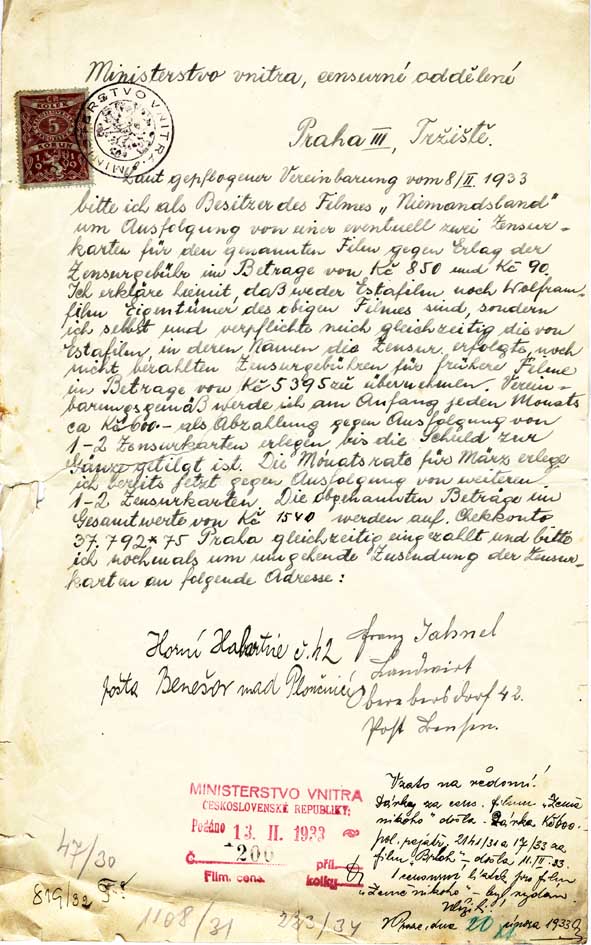 Ministerstvo vnitra, censurné oddělení
Praha III, Tržiště.
KOLEK
5
MINISTERSTVO VNITRA
Laut gepflogener Vereinbarung vom 8/II. 1933
bitte ich als Besitzer des Filmes „Niemandsland"
um Ausfolgung von einer eventuell zwei Zensur-
karten für den genannten Film gegen Erlag der
Zensurgebühr im Betrage von Kč 850 und Kč 90.
Ich erkläre hiemit, daß weder Estafilm noch Wolfram-
film Eigentümer des obigen Filmes sind, sondern
ich selbst und verpflichte mich gleichzeitig die von
Estafilm, in deren Namen die Zensur erfolgte, noch
nicht bezahlten Zensurgebühren für frühere Filme
im Betrage von Kč 5395 zu übernehmen. Verein-
barungsgemäß werde ich am Anfang jeden Monats
ca Kč 600.- als Abzahlung gegen Ausfolgung von
1-2 Zensurkarten erlegen bis die Schuld zur
Gänze getilgt ist. Die Monatsrate für März erlege
ich bereits jetzt gegen Ausfolgung von weiteren
1-2 Zensurkarten. Die obgenannten Beträge im
Gesamtwerte von Kč 1540 werden auf Chekkonto
37.792*75 Praha gleichzeitig eingezahlt und bitte
ich nochmals um umgehende Zusendung der Zensur-
karten an folgende Adresse:
Horní Habartice č. 42
pošta Benešov nad Ploučnicí
Franz Jahnel
Landwirt
Oberebersdorf 42.
Post Bensen.
MINISTERSTVO VNITRA
ČESKOSLOVENSKÉ REPUBLIKY.
Podáno 13. II. 1933
Č. 200 příl.
Film. cens. kolky
Vzato na vědomí.
Dávka za cens. filmu „Země
nikoho" došla. Dávka Kč 600.-
film
došla 11./II. 33.
1 censurní lístek pro film
„Země nikoho" - byl vydán.
V Praze, dne 20 února 1933
47/30
819/32
1108/31
223/34